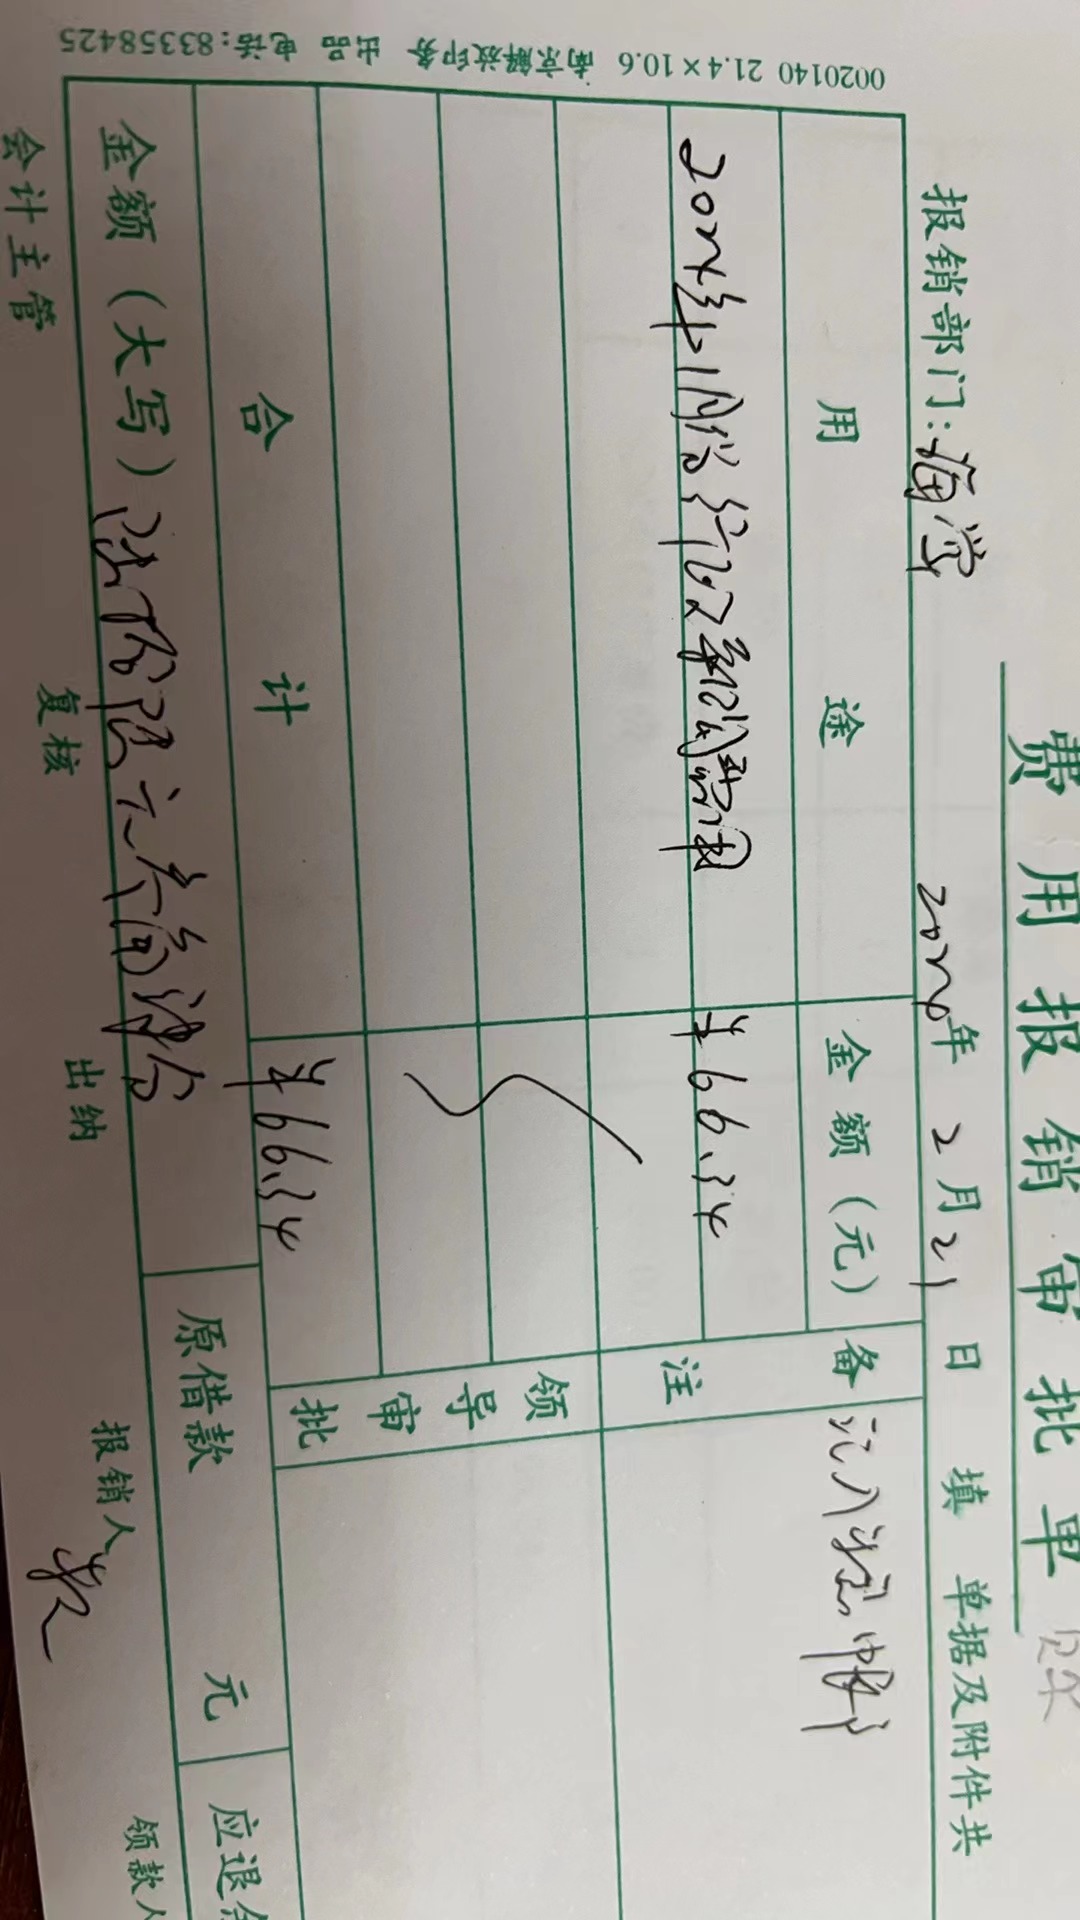 费用报销审批单
报销部门：海棠 2024年2月21日填 单据及附件共
用途 金额（元） 备注
2024年1月份 ¥66.34
领导审批
合计 ¥66.34
金额（大写）陆拾陆元叁角肆分 原借款 元 应退
会计主管 复核 出纳 报销人 领款人
0020140 21.4×10.6 南京解放印务 出品 电话：83358425